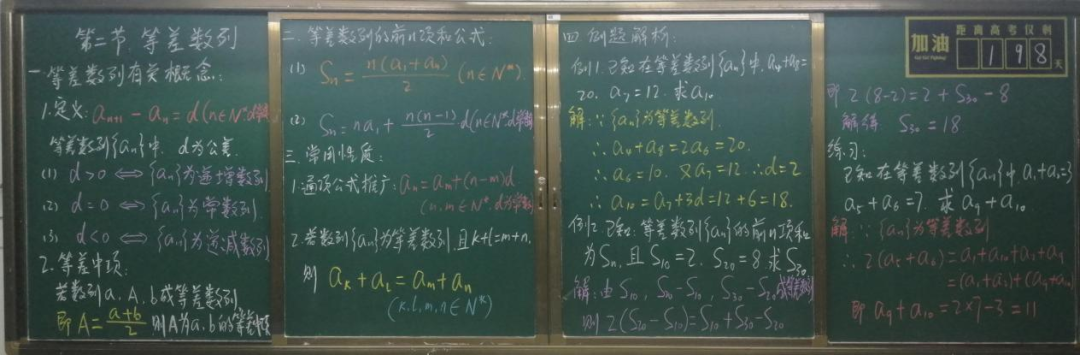 第二节 等差数列
一 等差数列有关概念:
1.定义: aₙ₊₁ - aₙ = d(n∈N* d为常数)
等差数列{aₙ}中, d为公差.
(1) d>0 ⟺ {aₙ}为递增数列
(2) d=0 ⟺ {aₙ}为常数列
(3) d<0 ⟺ {aₙ}为递减数列
2.等差中项:
若数列a.A.b成等差数列,
即 A=(a+b)/2 则A为a.b的等差中项
二、等差数列的前n项和公式:
(1) Sₙ = n(a₁+aₙ)/2 (n∈N*)
(2) Sₙ=na₁+n(n-1)/2 d(n∈N* d为常数)
三、常用性质:
1.通项公式推广: aₙ=aₘ+(n-m)d
(n,m∈N*.d为常数)
2.若数列{aₙ}为等差数列,且k+l=m+n.
则 aₖ+aₗ=aₘ+aₙ
(k.l.m.n∈N*)
四 例题解析:
例1.已知在等差数列{aₙ}中,a₄+a₈=
20. a₇=12. 求a₁₀
解:∵{aₙ}为等差数列
∴a₄+a₈=2a₆=20.
∴a₆=10. 又a₇=12.∴d=2
∴a₁₀=a₇+3d=12+6=18.
例2.已知:等差数列{aₙ}的前n项和
为Sₙ,且S₁₀=2. S₂₀=8.求S₃₀
解:由S₁₀,S₂₀-S₁₀,S₃₀-S₂₀成等差数列
则2(S₂₀-S₁₀)=S₁₀+S₃₀-S₂₀
加油
距离高考仅剩
198
天
即 2(8-2)=2+S₃₀-8
解得 S₃₀=18
练习:
已知在等差数列{aₙ}中,a₁+a₂=3
a₅+a₆=7. 求a₉+a₁₀
解:∵{aₙ}为等差数列
∴2(a₅+a₆)=a₁+a₁₀+a₂+a₉
=(a₁+a₂)+(a₉+a₁₀)
即a₉+a₁₀=2×7-3=11